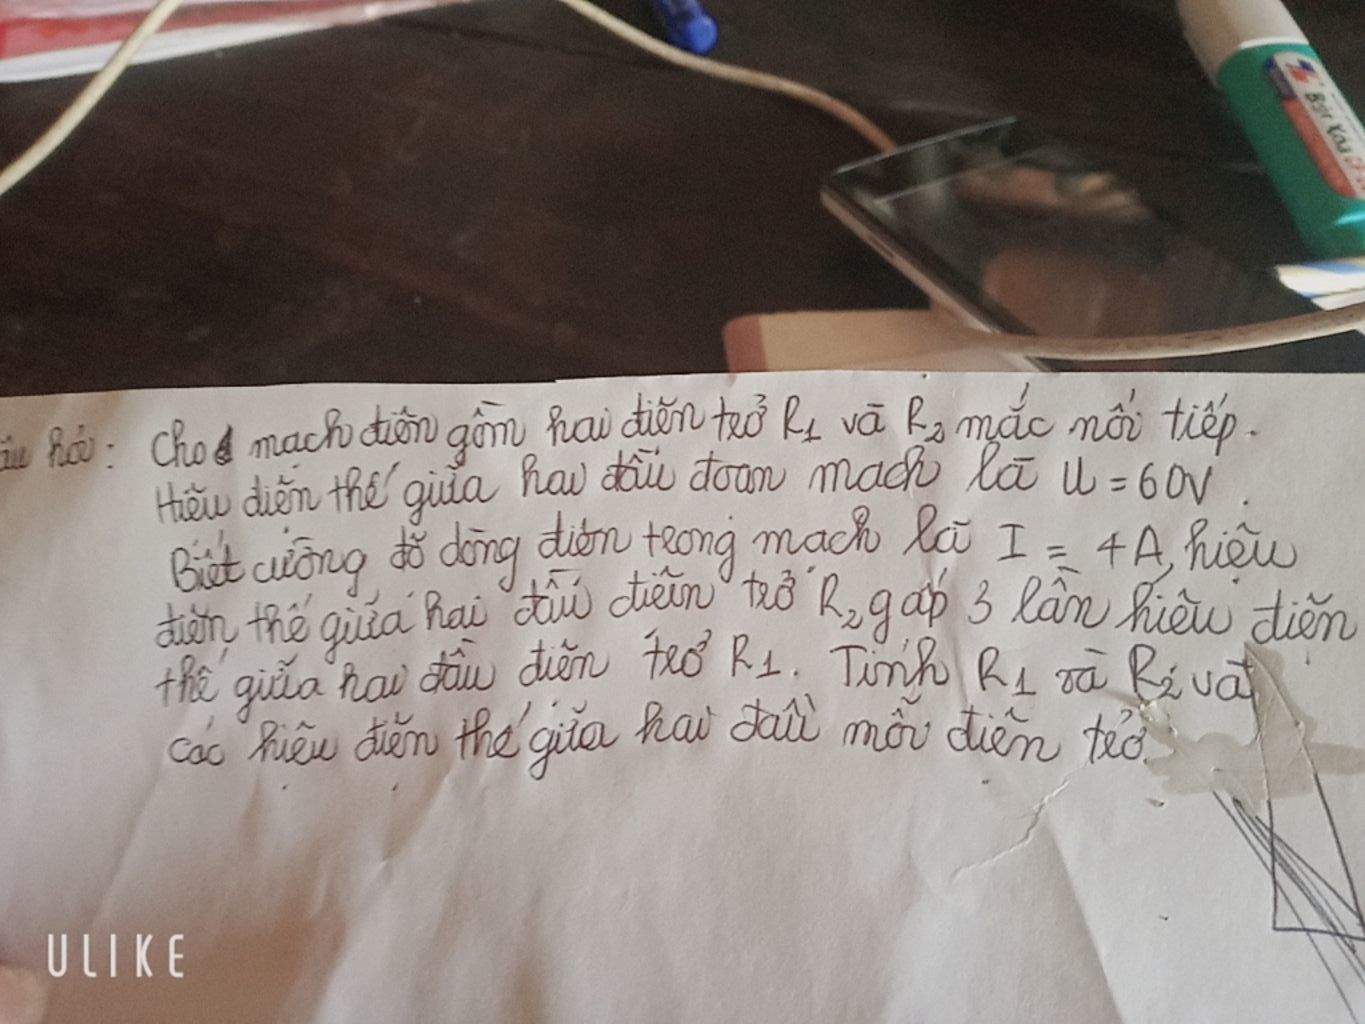 Bút Xóa CP
hỏi: Cho mạch điện gồm hai điện trở R1 và R2 mắc nối tiếp.
Hiệu điện thế giữa hai đầu đoạn mạch là U = 60V.
Biết cường độ dòng điện trong mạch là I = 4A, hiệu
điện thế giữa hai đầu điện trở R2 gấp 3 lần hiệu điện
thế giữa hai đầu điện trở R1. Tính R1 và R2 và
các hiệu điện thế giữa hai đầu mỗi điện trở.
ULIKE